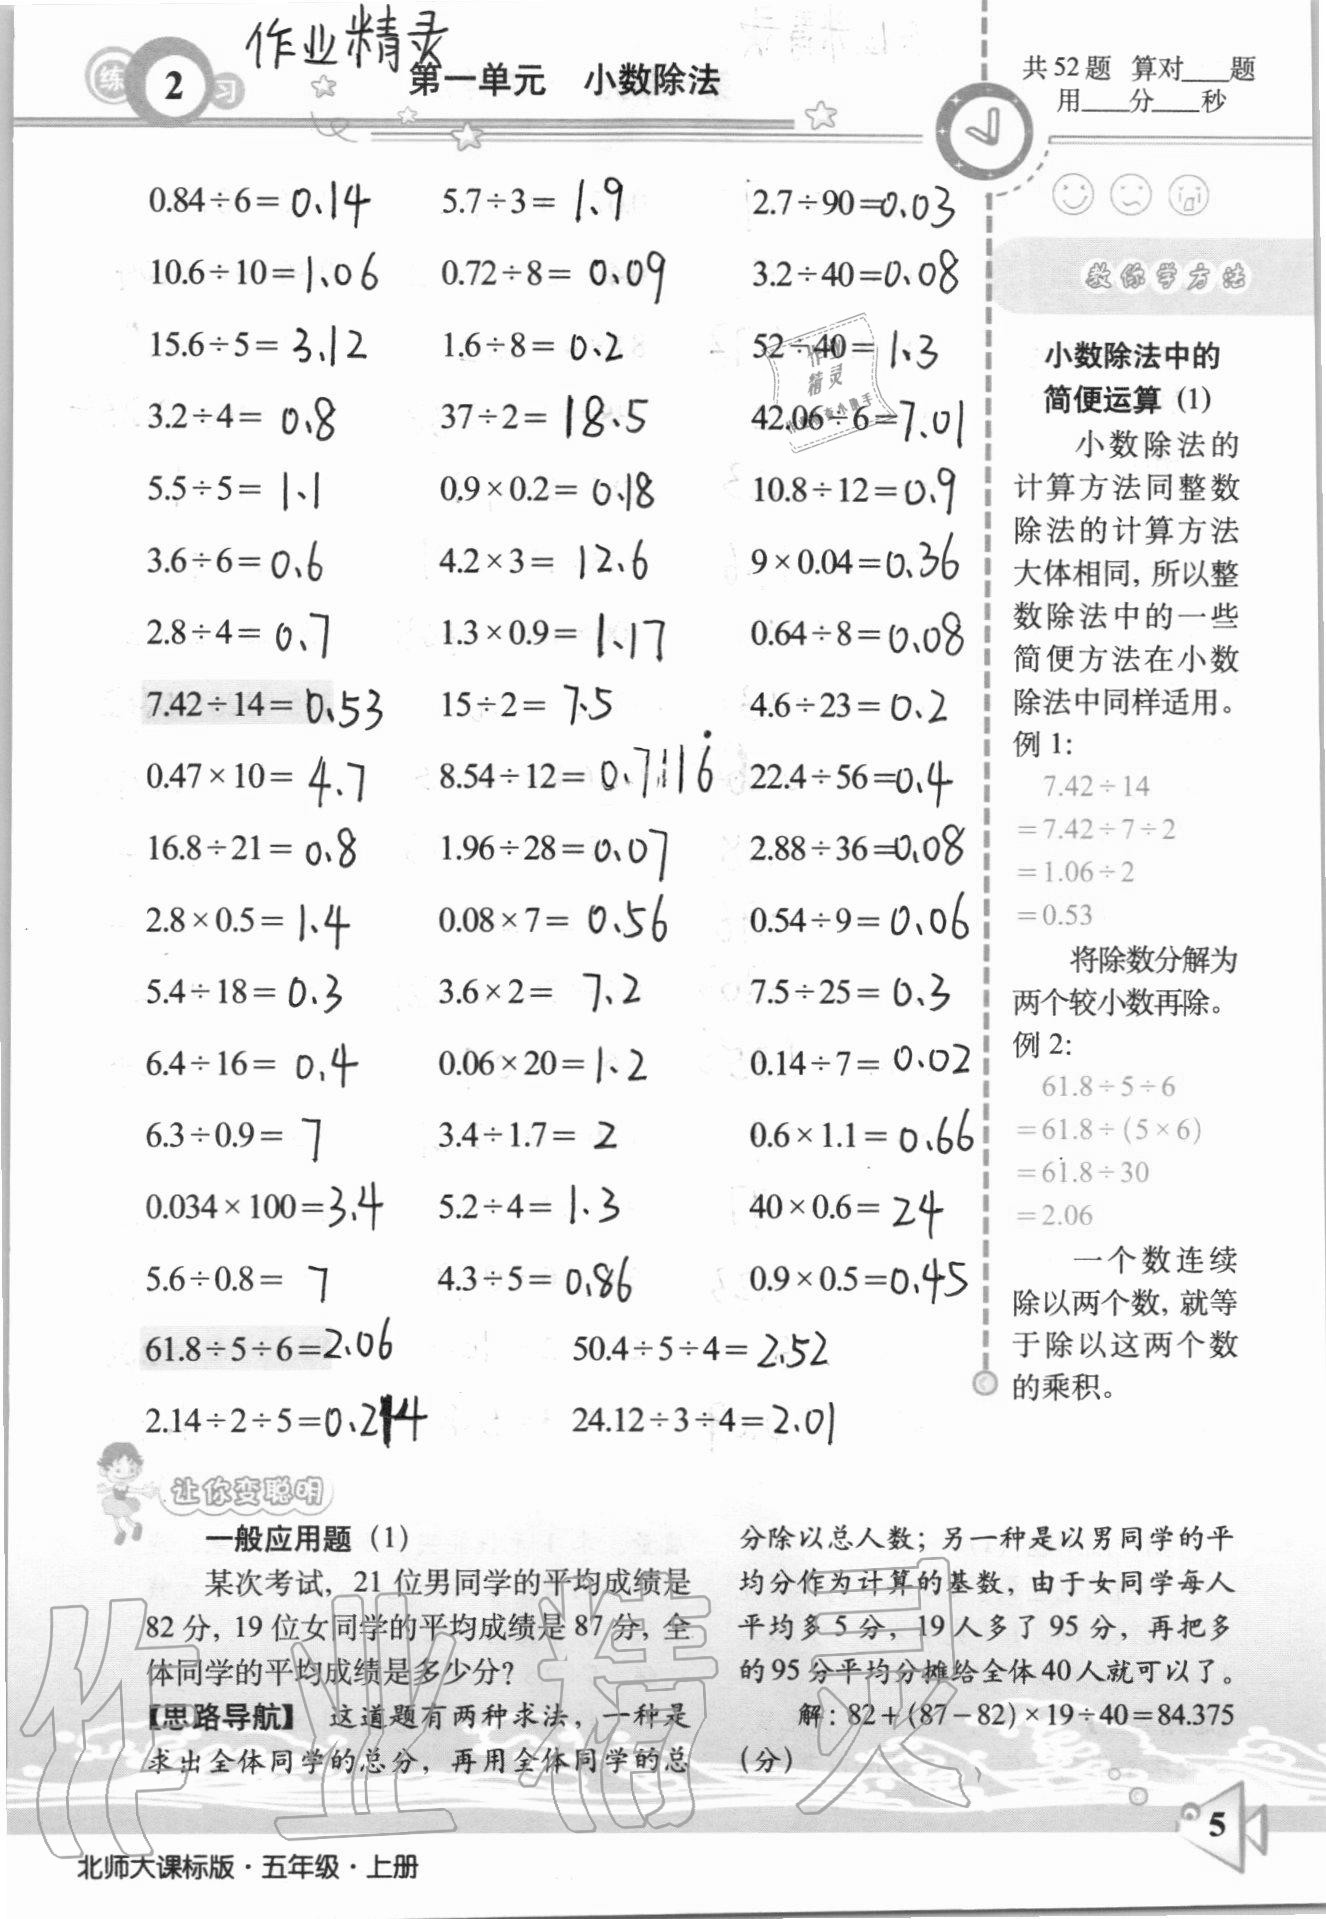 作业精灵
练 2 习
第一单元 小数除法
共52题 算对____题
用____分____秒
0.84÷6=0.14 5.7÷3=1.9 2.7÷90=0.03
10.6÷10=1.06 0.72÷8=0.09 3.2÷40=0.08
15.6÷5=3.12 1.6÷8=0.2 52÷40=1.3
3.2÷4=0.8 37÷2=18.5 42.06÷6=7.01
5.5÷5=1.1 0.9×0.2=0.18 10.8÷12=0.9
3.6÷6=0.6 4.2×3=12.6 9×0.04=0.36
2.8÷4=0.7 1.3×0.9=1.17 0.64÷8=0.08
7.42÷14=0.53 15÷2=7.5 4.6÷23=0.2
0.47×10=4.7 8.54÷12=0.7116̇ 22.4÷56=0.4
16.8÷21=0.8 1.96÷28=0.07 2.88÷36=0.08
2.8×0.5=1.4 0.08×7=0.56 0.54÷9=0.06
5.4÷18=0.3 3.6×2=7.2 7.5÷25=0.3
6.4÷16=0.4 0.06×20=1.2 0.14÷7=0.02
6.3÷0.9=7 3.4÷1.7=2 0.6×1.1=0.66
0.034×100=3.4 5.2÷4=1.3 40×0.6=24
5.6÷0.8=7 4.3÷5=0.86 0.9×0.5=0.45
61.8÷5÷6=2.06 50.4÷5÷4=2.52
2.14÷2÷5=0.214 24.12÷3÷4=2.01
作业
精灵
教你学方法
小数除法中的
简便运算(1)
小数除法的
计算方法同整数
除法的计算方法
大体相同,所以整
数除法中的一些
简便方法在小数
除法中同样适用。
例1:
7.42÷14
=7.42÷7÷2
=1.06÷2
=0.53
将除数分解为
两个较小数再除。
例2:
61.8÷5÷6
=61.8÷(5×6)
=61.8÷30
=2.06
一个数连续
除以两个数,就等
于除以这两个数
的乘积。
让你变聪明
一般应用题(1)
某次考试,21位男同学的平均成绩是
82分,19位女同学的平均成绩是87分,全
体同学的平均成绩是多少分?
【思路导航】 这道题有两种求法,一种是
求出全体同学的总分,再用全体同学的总
分除以总人数;另一种是以男同学的平
均分作为计算的基数,由于女同学每人
平均多5分,19人多了95分,再把多
的95分平均分摊给全体40人就可以了。
解:82+(87-82)×19÷40=84.375
(分)
作业精灵
5
北师大课标版·五年级·上册